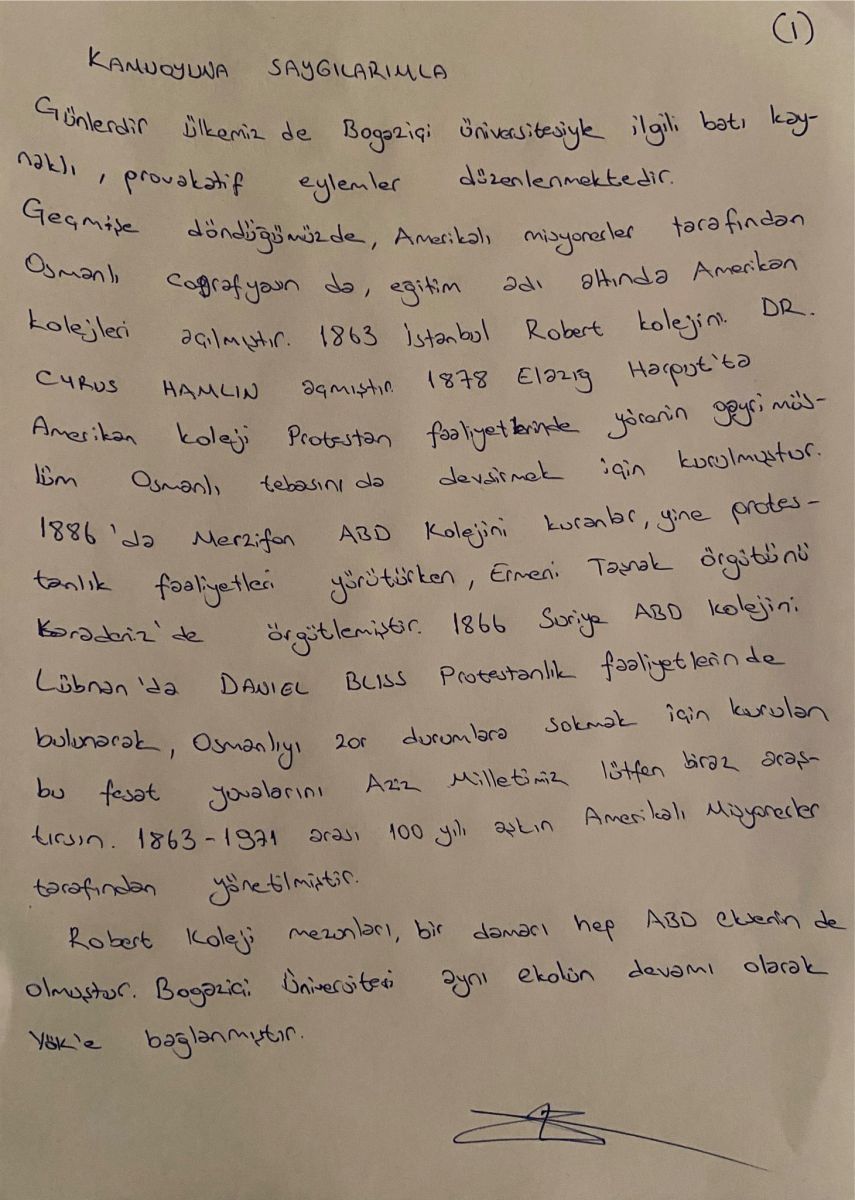 (1)
KAMUOYUNA SAYGILARIMLA
Günlerdir ülkemiz de Bogaziçi üniversitesiyle ilgili batı kay-
naklı, provakatif eylemler düzenlenmektedir.
Geçmişe döndüğümüzde, Amerikalı misyonerler tarafından
Osmanlı coğrafyasın da, eğitim adı altında Amerikan
kolejleri açılmıştır. 1863 İstanbul Robert kolejini DR.
CYRUS HAMLIN açmıştır. 1878 Elazıg Harput'ta
Amerikan koleji Protestan faaliyetlerinde yörenin gayri müs-
lüm Osmanlı tebasını da devsirmek için kurulmuştur.
1886'da Merzifon ABD Kolejini kuranlar, yine protes-
tanlık faaliyetleri yürütürken, Ermeni Taşnak örgütünü
Karadeniz'de örgütlemiştir. 1866 Suriye ABD kolejini
Lübnan'da DANIEL BLISS Protestanlık faaliyetlerin de
bulunarak, Osmanlıyı zor durumlara sokmak için kurulan
bu fesat yuvalarını Aziz Milletimiz lütfen biraz araş-
tırsın. 1863-1971 arası 100 yılı aşkın Amerikalı Misyonerler
tarafından yönetilmiştir.
Robert Koleji mezunları, bir damarı hep ABD eksenin de
olmuştur. Bogaziçi Üniversitesi aynı ekolün devamı olarak
YÖK'e bağlanmıştır.